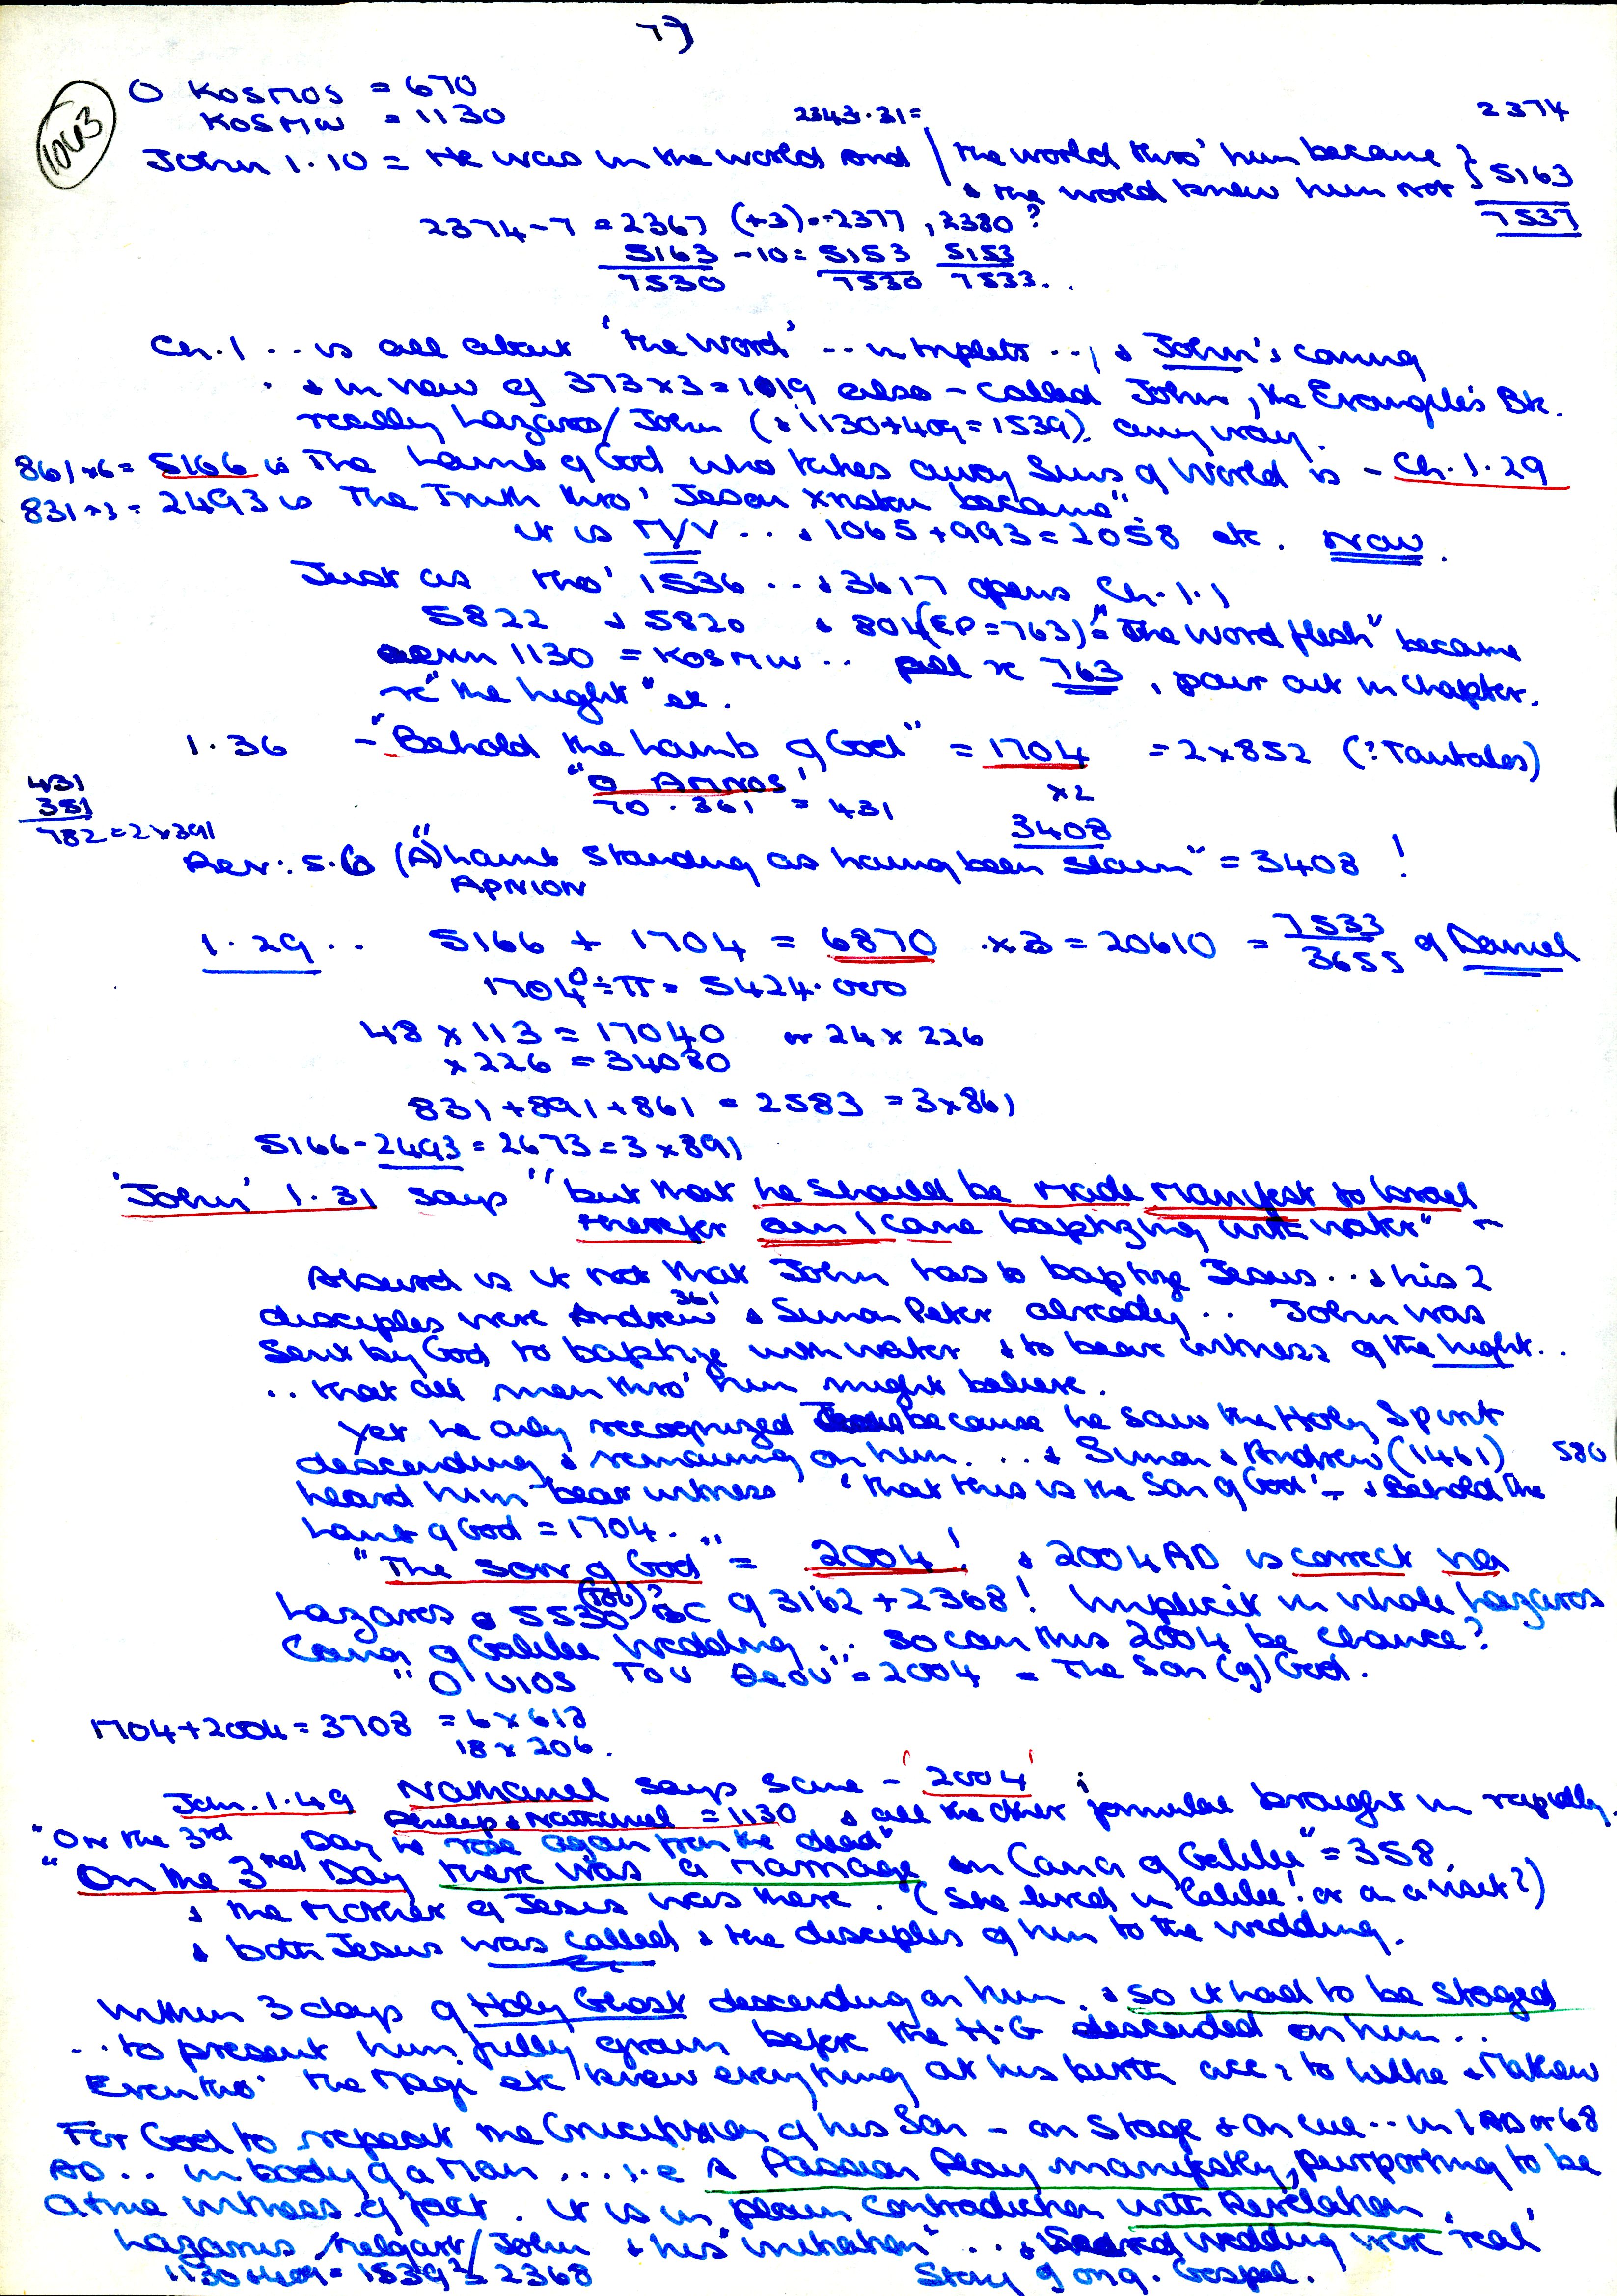 73
1043
O KOSMOS = 670
KOSMW = 1130
2343.31 =
2374
John 1.10 = He was in the world and / the world thro' him became } 5163
& the world knew him not
7537
2374 - 7 = 2367 (+3) -- 2377, 2380?
5163 - 10 = 5153 5153
7530 7530 7533..
Ch. 1 .. is all about 'the Word' .. in triplets .., & John's coming
. & in view of 373 x 3 = 1019 also - called John, the Evangelist's Bk.
really Lazaros/John (& 1130+409 = 1539). anyway.
861 x 6 = 5166 is The Lamb of God who takes away Sins of World is - Ch. 1.29
831 x 3 = 2493 is The Truth thro' Jesou Xristou became".
it is M/V ... & 1065 + 993 = 2058 etc. Now.
Just as tho' 1536 ... & 3617 opens Ch. 1.1
5822 & 5820 & 804 (EP = 763) = "The Word flesh" became
1130 = KOSMW .. all x 763, pour out in chapter.
"the Light" etc.
1.36 - "Behold the Lamb of God" = 1704 = 2 x 852 (? Tantalos)
"O AMNOS"
x 2
431
351
782 = 2 x 391
70 . 361 = 431
3408
Rev: 5.6 (A) "Lamb standing as having been slain" = 3408 !
APNION
1.29 .. 5166 + 1704 = 6870 x 3 = 20610 = 7533
3655 of Daniel
17040 ÷ π = 5424.000
48 x 113 = 17040 or 24 x 226
x 226 = 34080
831 + 891 + 861 = 2583 = 3 x 861
5166 - 2493 = 2673 = 3 x 891
'John' 1.31 says "but that he should be made Manifest to Israel
therefor am I came baptizing with water" -
Absurd is it not that John has to baptize Jesus ... & his 2
disciples were Andrew 361 & Simon Peter already .. John was
Sent by God to baptize with water & to bear witness of the Light ..
.. that all men thro' him might believe.
Yet he only recognized because he saw the Holy Spirit
descending & remaining on him. ... & Simon & Andrew (1461) 580
heard him bear witness 'that this is the Son of God' - & Behold the
Lamb of God = 1704. ..
"The Son of God" = 2004 ! & 2004 AD is correct
Lazaros 5530 BC of 3162 + 2368 ! Implicit in whole Lazaros
Cana of Galilee Wedding ... so can this 2004 be chance?
"O UIOS TOU ΘEOU" = 2004 = The Son (of) God.
1704 + 2004 = 3708 = 6 x 618
18 x 206.
Joh. 1.49 Nathaniel says same - '2004' ;
Philip & Nathaniel = 1130 & all the other formulae brought in rapidly.
"On the 3rd Day he rose again from the dead"
"On the 3rd Day there was a marriage in Cana of Galilee" = 358.
& the Mother of Jesus was there. (She lived in Galilee! or on a visit?)
& both Jesus was called & the disciples of him to the wedding.
Within 3 days of Holy Ghost descending on him. & so it had to be staged
.. to present him fully grown before the H.G descended on him ..
Even tho' the Magi etc knew everything at his birth acc: to Luke & Mathew
For God to repeat the Crucifixion of his Son - on stage & on cue .. in 1 AD or 68
AD .. in body of a Man ... i.e A Passion Play manifestly, purporting to be
a true witness of fact. it is in plain contradiction with Revelation.
Lazarus, /John & his "initiation" .. & Sacred Wedding were 'real'
1130 + 409 = 1539 2368
Story of orig. Gospel.